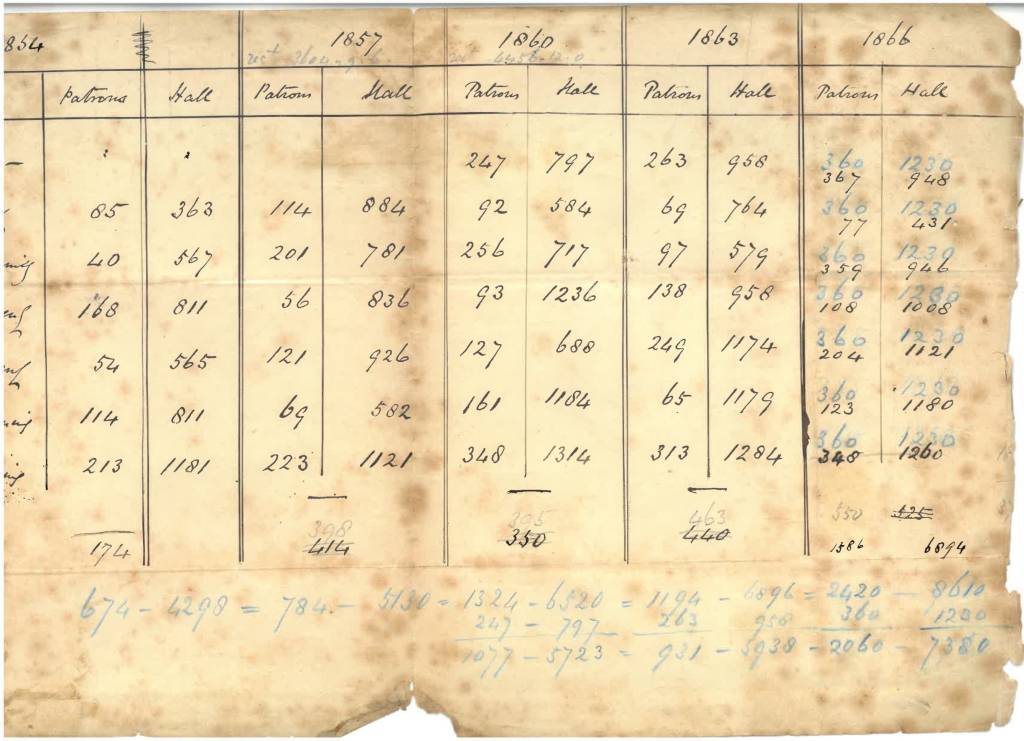 1854 1857 1860 1863 1866
Patrons Hall Patrons Hall Patrons Hall Patrons Hall Patrons Hall
247 797 263 958 360 1230
367 948
85 363 114 884 92 584 69 764 360 1230
77 431
40 567 201 781 256 717 97 579 360 1230
359 946
168 811 56 836 93 1236 138 958 360 1230
108 1008
54 565 121 926 127 688 249 1174 360 1230
204 1121
114 811 69 582 161 1184 65 1179 360 1230
123 1180
213 1181 223 1121 348 1314 313 1284 360 1230
348 1260
398 395 463 550 525
174 414 350 440 1586 6894
674 - 4298 = 784 - 5130 = 1324 - 6520 = 1194 - 6896 = 2420 - 8610
247 - 797 263 958 360 1230
1077 - 5723 = 931 - 5938 - 2060 - 7380